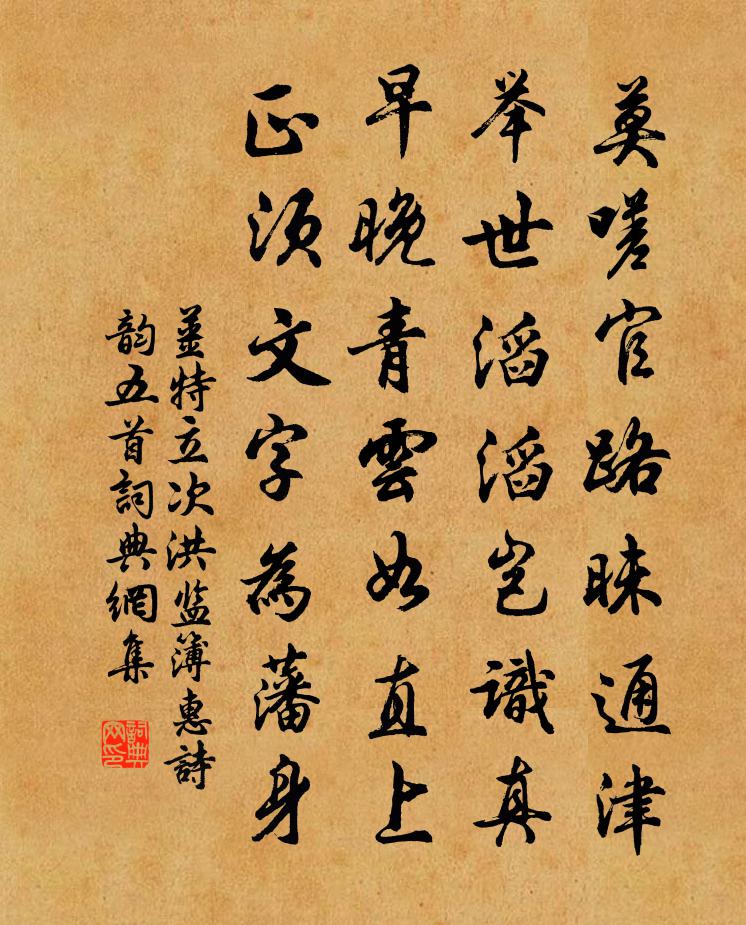 莫嗟官路昧通津
举世滔滔岂識真
早晚青雲如直上
正须文字為藩身
姜特立次洪监簿惠詩
韵五首詞典網集
詞典网印